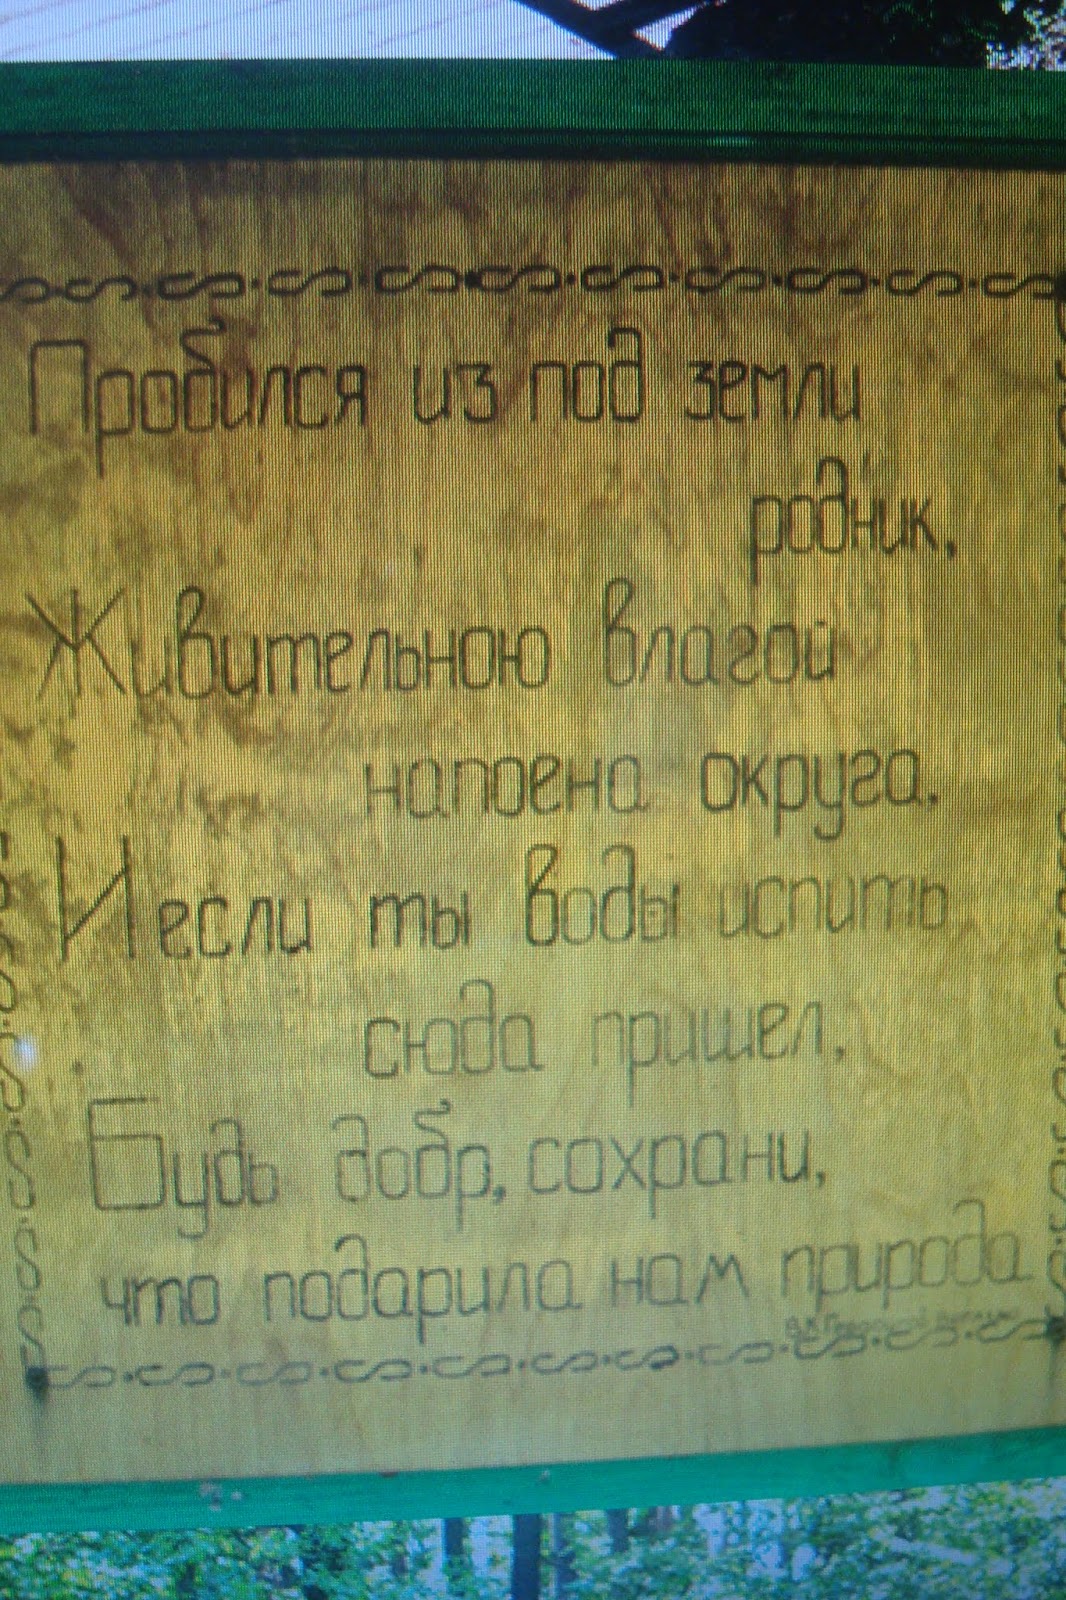 Пробился из под земли
родник,
Живительною влагой
напоена округа.
И если ты воды испить
сюда пришел,
Будь добр, сохрани,
что подарила нам природа